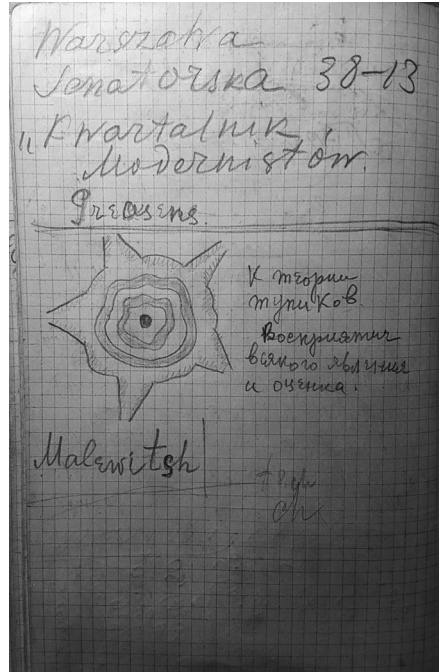 Warszawa
Senatorska 38-13
„Kwartalnik
Modernistów.
Praesens.
К теории
тупиков.
Восприятия
всякого явления
и оценка.
Malewitsh
ch